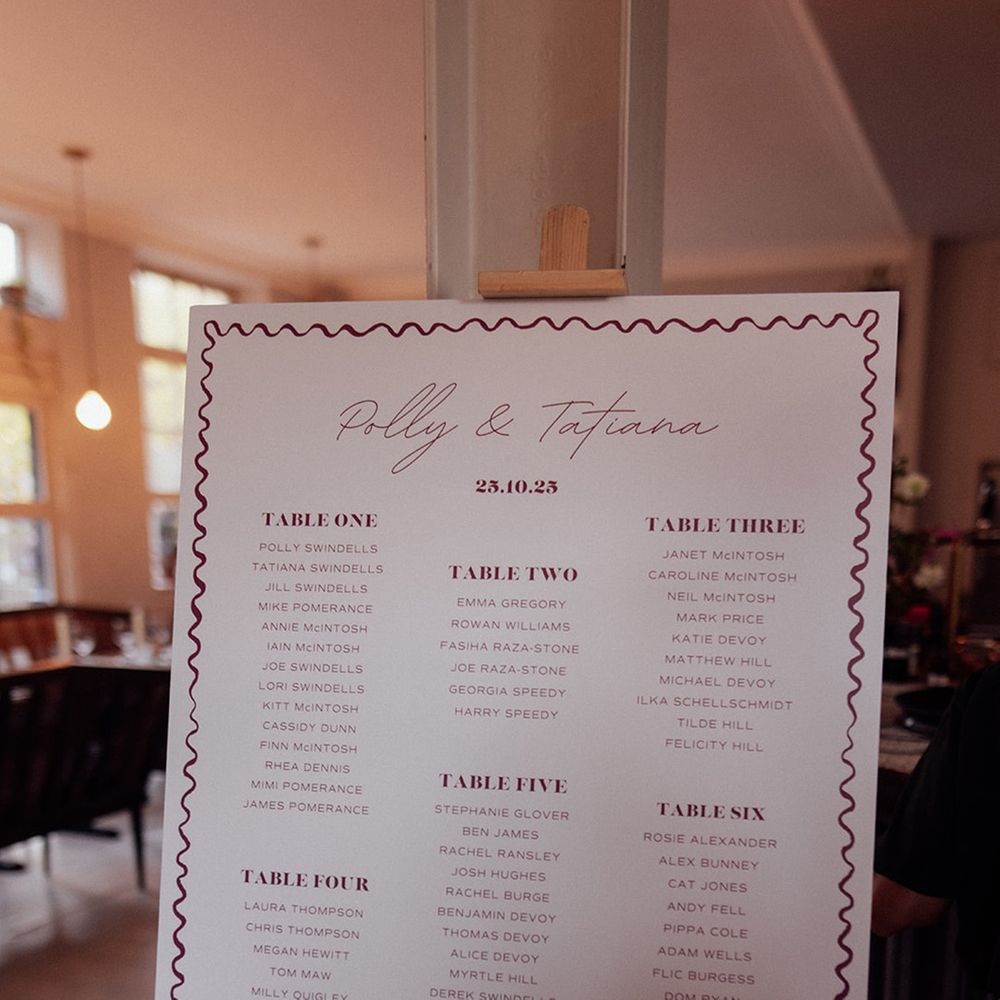 Polly & Tatiana
25.10.25
TABLE ONE
POLLY SWINDELLS
TATIANA SWINDELLS
JILL SWINDELLS
MIKE POMERANCE
ANNIE McINTOSH
IAIN McINTOSH
JOE SWINDELLS
LORI SWINDELLS
KITT McINTOSH
CASSIDY DUNN
FINN McINTOSH
RHEA DENNIS
MIMI POMERANCE
JAMES POMERANCE
TABLE TWO
EMMA GREGORY
ROWAN WILLIAMS
FASIHA RAZA-STONE
JOE RAZA-STONE
GEORGIA SPEEDY
HARRY SPEEDY
TABLE THREE
JANET McINTOSH
CAROLINE McINTOSH
NEIL McINTOSH
MARK PRICE
KATIE DEVOY
MATTHEW HILL
MICHAEL DEVOY
ILKA SCHELLSCHMIDT
TILDE HILL
FELICITY HILL
TABLE FOUR
LAURA THOMPSON
CHRIS THOMPSON
MEGAN HEWITT
TOM MAW
MILLY QUIGLEY
TABLE FIVE
STEPHANIE GLOVER
BEN JAMES
RACHEL RANSLEY
JOSH HUGHES
RACHEL BURGE
BENJAMIN DEVOY
THOMAS DEVOY
ALICE DEVOY
MYRTLE HILL
DEREK SWINDELLS
TABLE SIX
ROSIE ALEXANDER
ALEX BUNNEY
CAT JONES
ANDY FELL
PIPPA COLE
ADAM WELLS
FLIC BURGESS
DOM RYAN